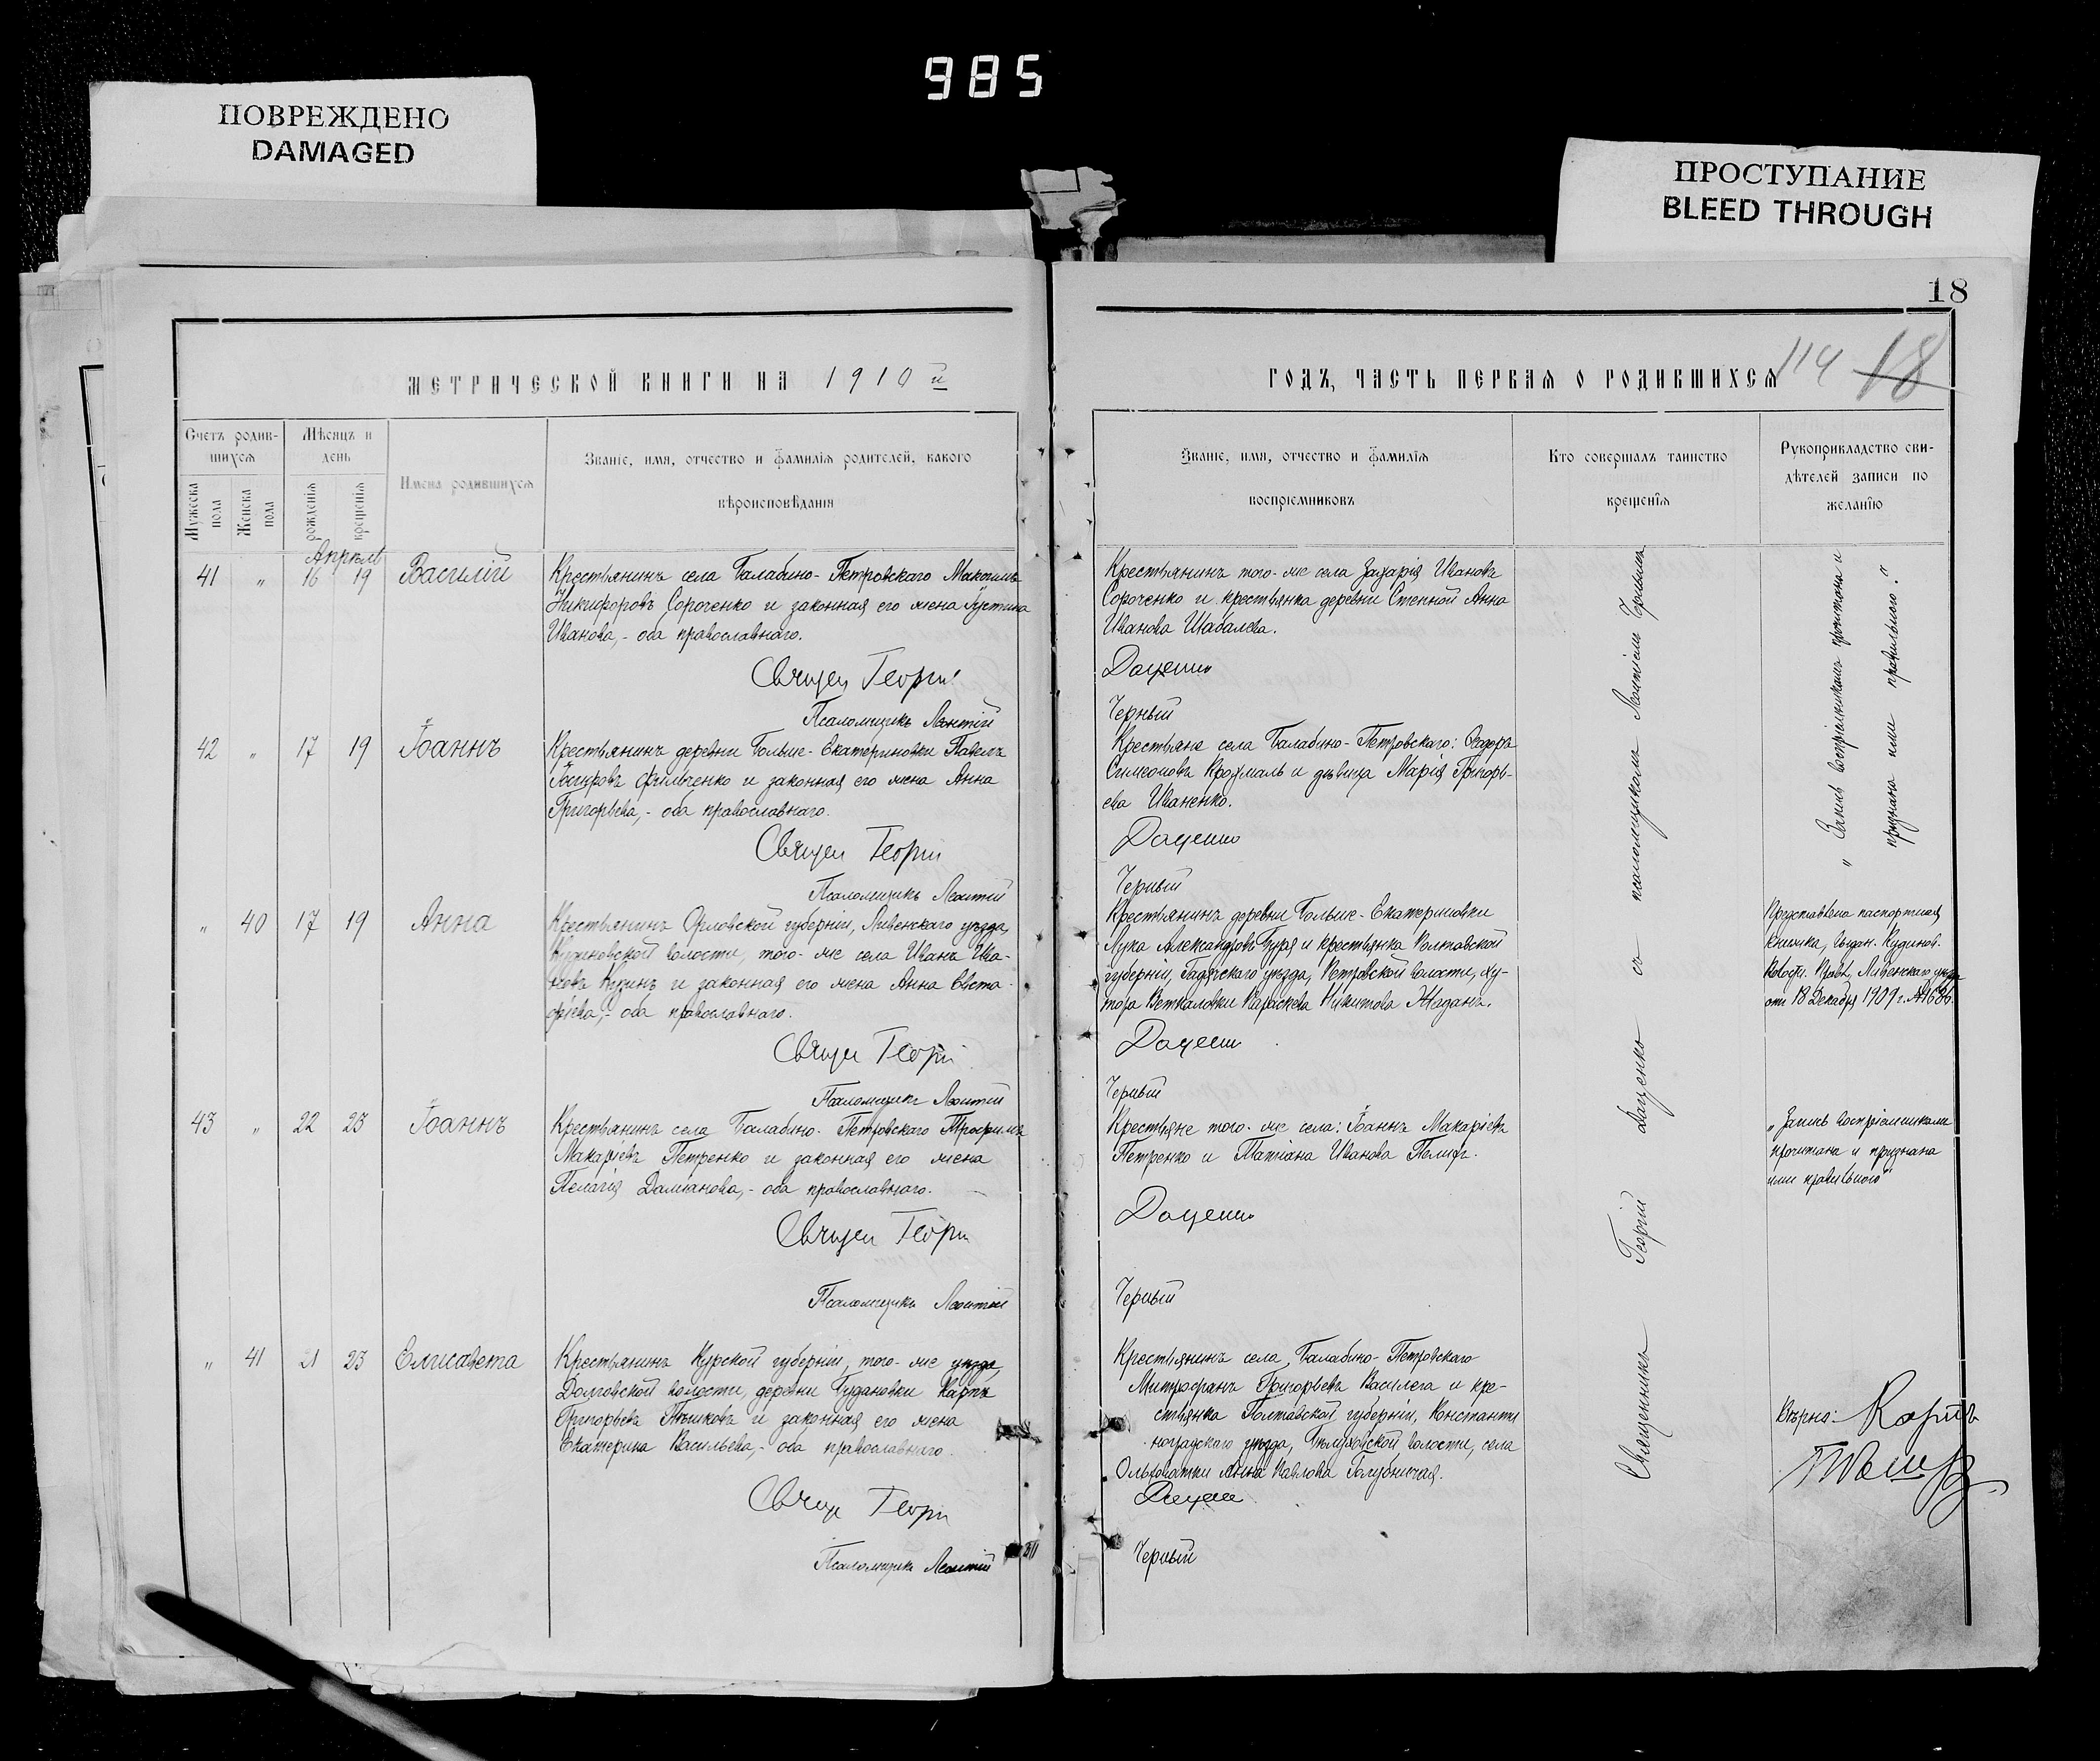 985
ПОВРЕЖДЕНО
DAMAGED
ПРОСТУПАНИЕ
BLEED THROUGH
18
114 18
МЕТРИЧЕСКОЙ КНИГИ НА 1910 й
Счетъ родив-
шихся
Мужеска пола
Женска пола
Мѣсяцъ и
день
рожденія
крещенія
Имена родившихся
Званіе, имя, отчество и фамилія родителей, какого
вѣроисповѣданія
Апрѣль
41 " 16 19 Василій
Крестьянинъ села Балабино-Петровскаго Максимъ
Никифоровъ Сороченко и законная его жена Іустина
Иванова,- оба православнаго.
Священ Георгі
Псаломщикъ Леонтій
42 " 17 19 Іоаннъ
Крестьянинъ деревни Больше-Екатериновки Павелъ
Фильченко и законная его жена Анна
Григорьева,- оба православнаго.
Священ Георгі
Псаломщикъ Леонтій
" 40 17 19 Анна
Крестьянинъ Орловской губерніи, Ливенскаго уѣзда,
волости, того-же села Иванъ Ива-
новъ и законная его жена Анна Евста-
фіева,- оба православнаго.
Священ Георгі
Псаломщикъ Леонтій
43 " 22 23 Іоаннъ
Крестьянинъ села Балабино-Петровскаго Трофимъ
Макаріевъ Петренко и законная его жена
Пелагія Даміанова,- оба православнаго.
Священ Георгі
Псаломщикъ Леонтій
" 41 21 23 Елисавета
Крестьянинъ Курской губерніи, того-же уѣзда,
Долговской волости, деревни Будановки Карпъ
Григорьевъ Пѣшковъ и законная его жена
Екатерина Васильева,- оба православнаго.
Свящ Георгі
Псаломщикъ Леонтій
ГОДЪ, ЧАСТЬ ПЕРВАЯ О РОДИВШИХСЯ
Званіе, имя, отчество и фамилія
воспріемниковъ
Кто совершалъ таинство
крещенія
Рукоприкладство сви-
дѣтелей записи по
желанію
Крестьянинъ того-же села Захарія Ивановъ
Сороченко и крестьянка деревни Степной Анна
Иванова Шабалева.
Даценко
Черный
Крестьяне села Балабино-Петровскаго: Ѳеодоръ
Симеоновъ Крохмаль и дѣвица Марія Григорь-
ева Иваненко.
Даценко
Черный
Крестьянинъ деревни Больше-Екатериновки
Лука Александровъ и крестьянка Полтавской
губерніи, Гадячскаго уѣзда, Петровской волости, ху-
тора Параскева Никитова Жаданъ.
Даценко
Черный
Крестьяне того-же села: Іоаннъ Макаріевъ
Петренко и Татіана Иванова
Даценко
Черный
Крестьянинъ села, Балабино-Петровскаго
Митрофанъ Григорьевъ Василега и кре-
стьянка Полтавской губерніи, Константи
ноградскаго уѣзда, волости, села
Ольховатки Анна Павлова Голубничая.
Даценко
Черный
Священникъ Георгій Даценко съ псаломщикомъ Леонтіемъ Чернымъ
"Запись воспріемникамъ прочитана и
признана ими правильного."
Представлена паспортная
книжка, выдан.
Волостн. Правл., Ливенскаго уѣзда
отъ 18 Декабря 1909 г.
"Запись воспріемниками
прочитана и признана
ими правильного"
Вѣрно: